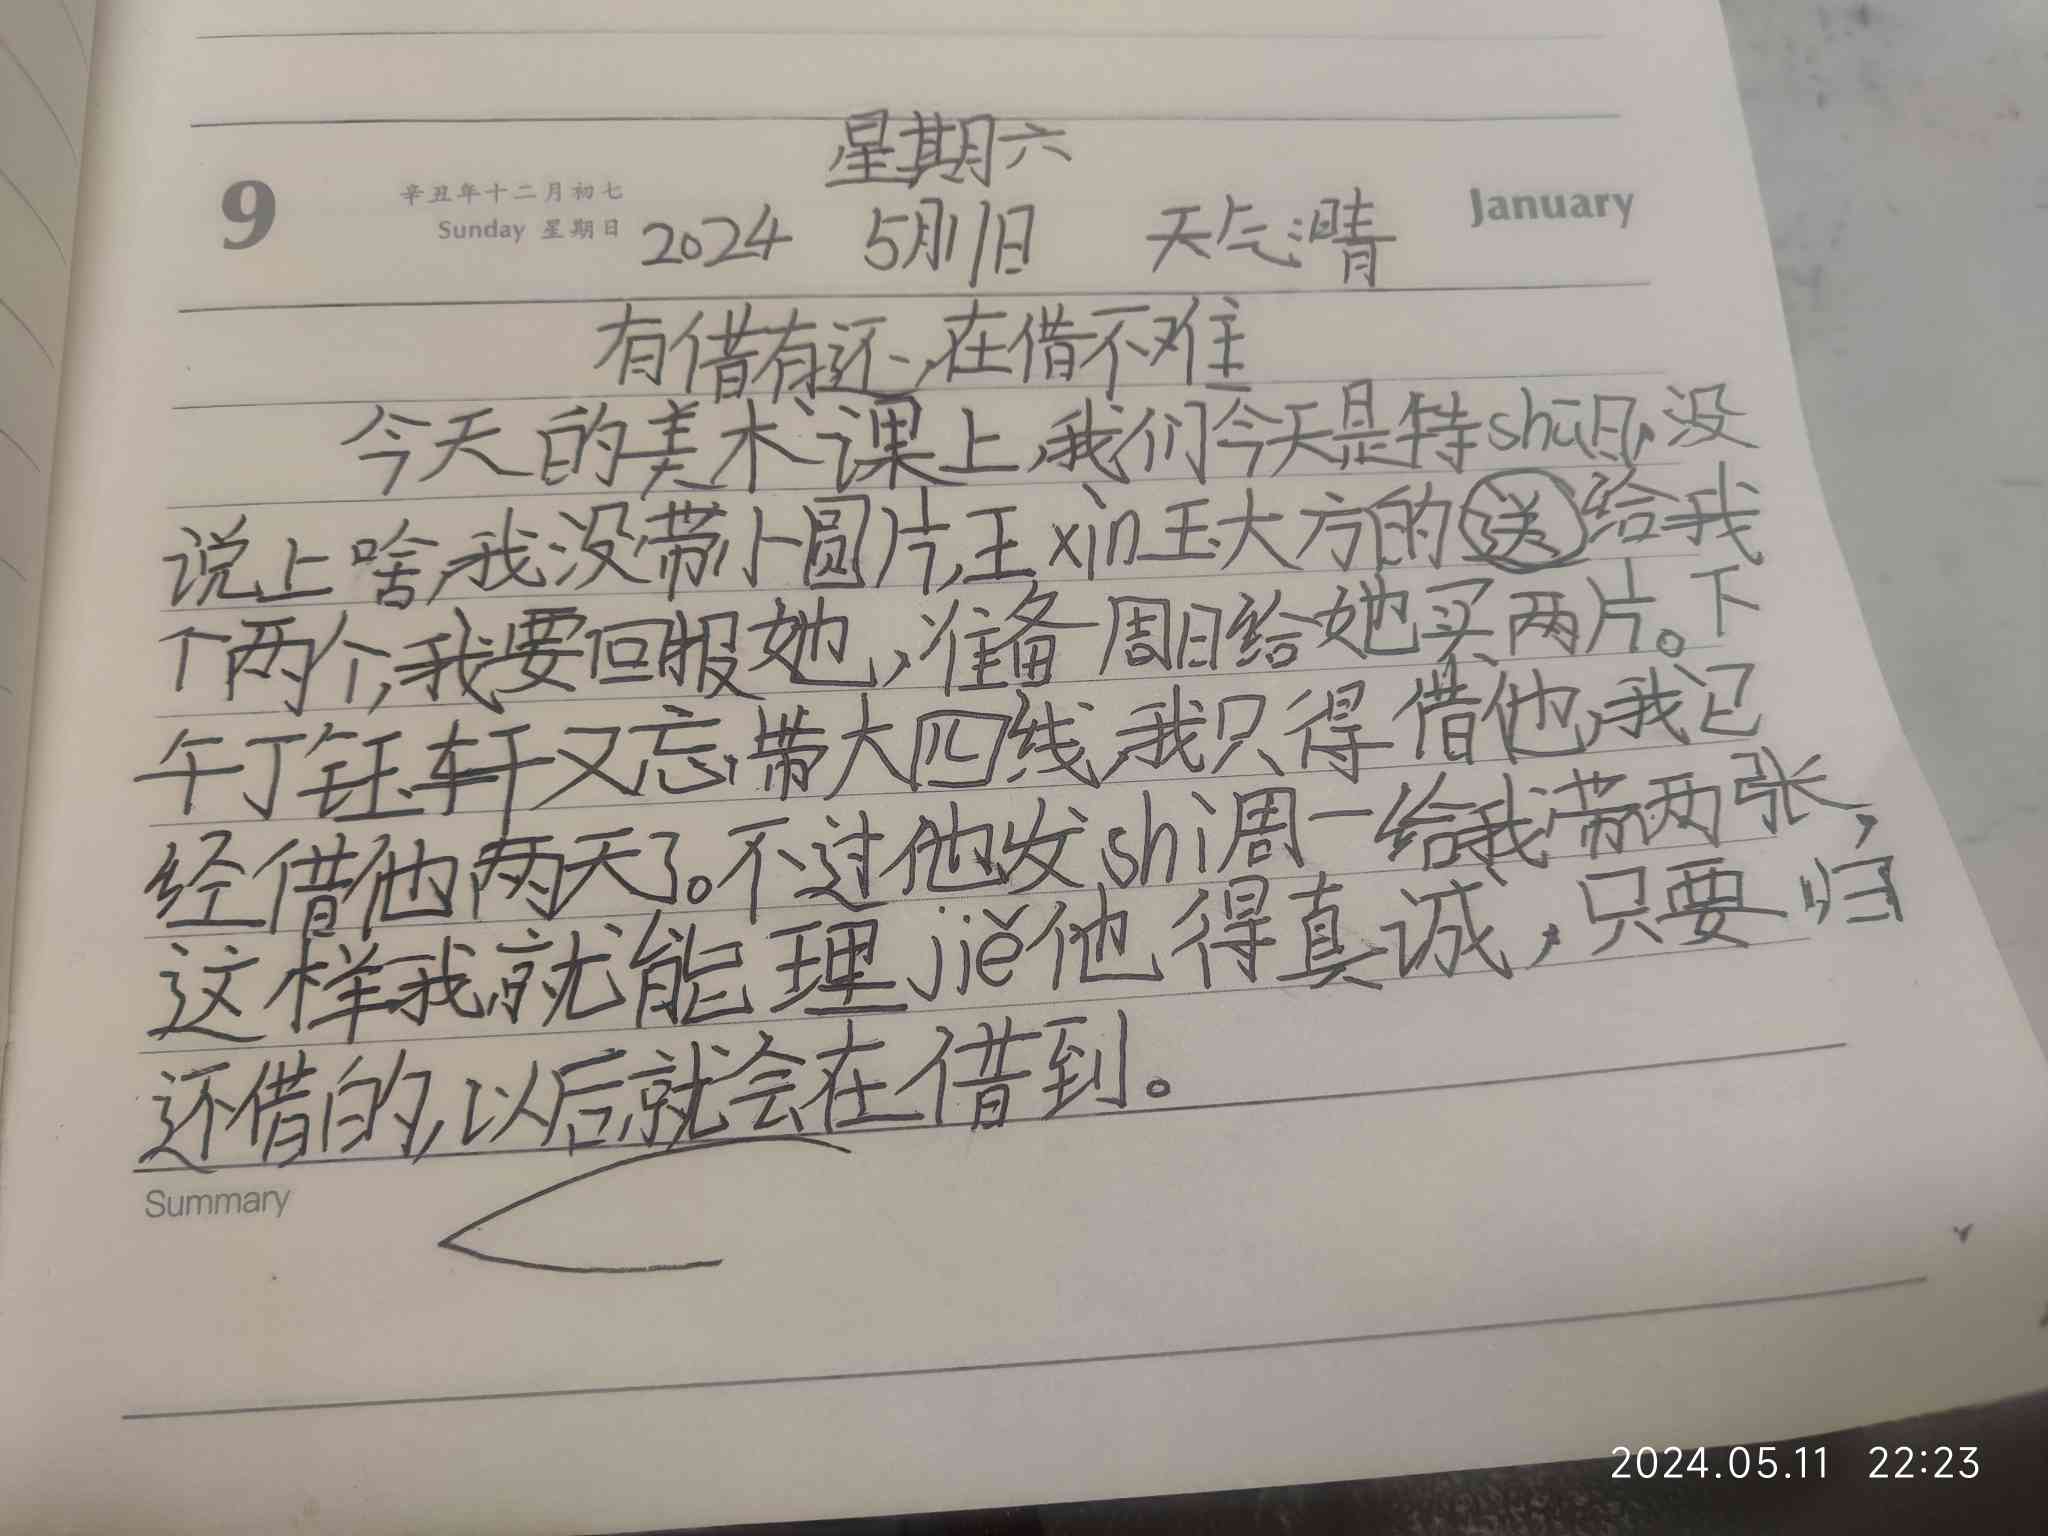 星期六
9 辛丑年十二月初七 January
Sunday 星期日 2024 5月11日 天气:晴
有借有还,在借不难
今天的美术课上,我们今天是特shū日,没
说上啥,我没带小圆片,王xin玉大方的送给我
个两个,我要回报她,准备周日给她买两片。下
午丁钰轩又忘带大四线,我只得借他,我已
经借他两天了。不过他发shi周一给我带两张,
这样我就能理jiě他得真诚,只要归
还借的,以后就会在借到。
Summary
2024.05.11 22:23